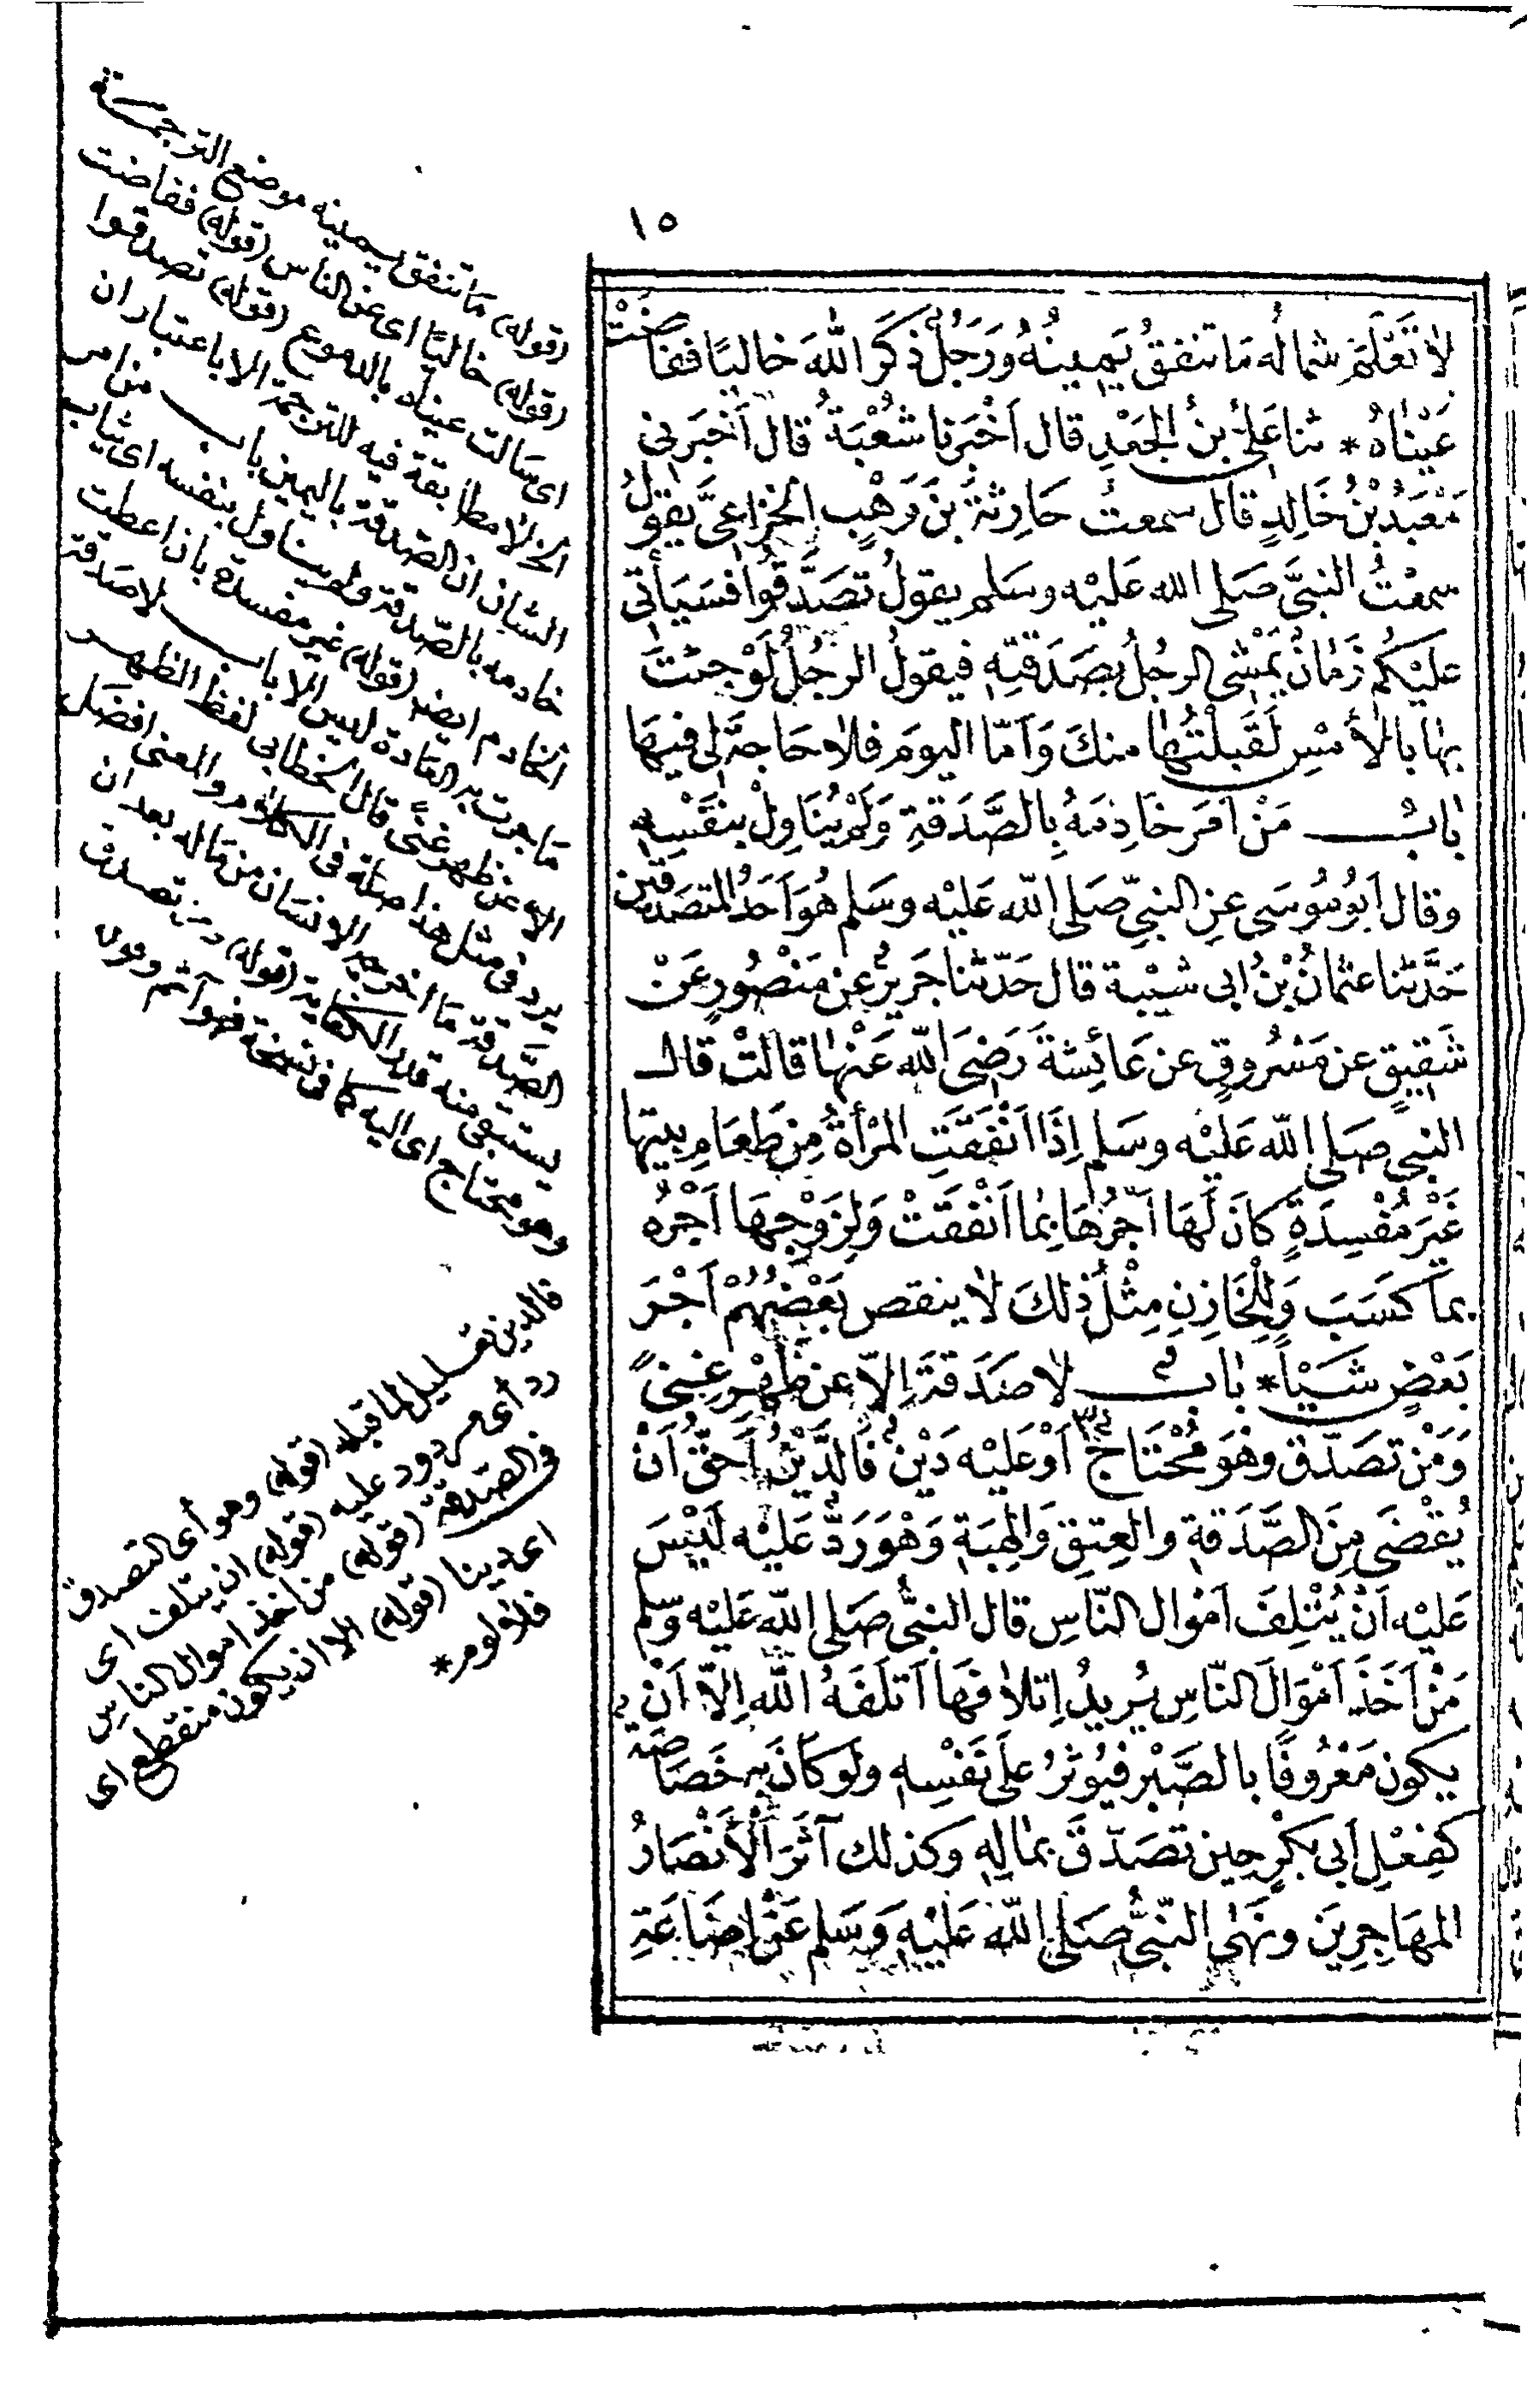 ١٥
لا تَعْلَمَ شماله مَا تنفقُ يَمِينُهُ ورَجُلٌ ذكَرَ اللهَ خاليًا ففاضَتْ
عَيْنَاهُ * ثنا عَلىّ بنُ الجَعْدِ قال اَخْبَرنا شُعْبَةُ قال أخبَرنى
مَعْبَدُ بْنُ خَالِدٍ قال سمعتُ حَارِثةَ بْنَ وَهْبٍ الخزاعىَّ يقولُ
سمعْتُ النبىَّ صَلى الله عَليْه وسَلم يقولُ تصَدَّقُوا فسَيَأتى
عليْكُم زَمَانٌ يَمْشى الرجُلُ بصَدَقتِهِ فيقولُ الرجُلُ لَوْ جئتَ
بهَا بالأمْسِ لَقَبِلْتُهَا منكَ وَاَمّا اليومَ فلا حَاجةَ لى فيهَا
بابُ مَنْ اَمَرَ خَادِمَهُ بِالصَّدَقةِ وَلَمْ يُنَاوِلْ بنفْسِهِ
وقال اَبُو مُوسَى عِن النبىِّ صَلى الله عَليْه وسَلم هُوَ اَحَدُ المتصَدّقَين
حَدَّثنا عثمانُ بْنُ ابى شيْبة قال حَدّثنا جَريرٌ عن مَنْصُورٍ عَنْ
شَقِيقٍ عن مَسْرُوقٍ عن عَائِشةَ رَضِىَ الله عَنْها قالتْ قال
النبى صَلى الله عَليْه وسَلم إذَا اَنْفَقَتِ المرْأةُ مِنْ طَعَامِ بيتِها
غَيْرَ مُفْسِدَةٍ كانَ لَهَا اَجْرُهَا بمَا اَنْفَقَتْ وَلِزَوْجِهَا اَجْرُه
بما كَسَبَ وَلِلْخَازِنِ مِثْلُ ذلكَ لا ينقص بَعْضُهُمْ اَجْرَ
بَعْضٍ شَيْأً * بابُ لا صَدَقةَ اِلاّ عن ظَهْرِ غِنىً
وَمَنْ تصَدّق وهْوَ مُحْتَاجٌ اَوْ عَليْه دَيْنٌ فَالدَّيْنُ اَحَقُّ اَنْ
يُقْضَى مِنَ الصَّدَقةِ والعِتقِ وَالهِبَةِ وَهْوَ رَدٌّ عَليْه لَيْسَ
عَليْه اَنْ يُتْلِفَ اَمْوال النّاسِ قال النبىُّ صَلى الله عَليْه وسّلم
مَنْ اَخَذَ اَمْوَالَ النّاسِ يُريدُ اِتلافَهَا اَتلَفَهُ الله اِلاّ اَنْ
يكونَ مَعْرُوفًا بالصَّبْر فيُوثرُ علَى نَفْسِه ولو كانَ بهِ خَصَاصَة
كفِعْلِ أبى بكرٍ حِين تصَدّقَ بمالِهِ وكذلك آثرَ الأَنْصَارُ
المهَاجِرِينَ ونَهَى النّبىُّ صَلى اللّه عَليْهِ وَسَلم عَنْ إضَاعَةِ
(قوله) مَا تنفق يمينه موضع الترجمَة
(قوله) خاليًا اى عن الناس (قوله) ففاضت
اى سَالت عيناه بالدموع (قوله) تصدقوا
الخ لامطابقة فيه للترجمة الا باعتبار ان
الشان ان الصّدقة باليمين باب من امر
خادمه بالصّدقة ولم يناول بنفسه اى يثاب
الخادم ايضا (قوله) غير مفسدة بان اعطت
مَا جرت به العَادة ليس الا باب لا صَدقة
الا عن ظهر غنًى قال الخطابى لفظ الظهر
يرد فى مثل هذا صلة فى الكلام والمعنى افضَل
الصَّدقة مَا اخرجه الانسَان من مَاله بعد ان
يستبقى منه قدر الكفاية (قوله) ومن تصدق
وهو محتاج اى اليه كما فى نسخة فهو آثم وقوله
فالدين تعليل لما قبله (قوله) وهو أى التصدق
رد أى مردود عليه (قوله) ان يتلف اى
فى الصّدقة (قوله) من اخذ اموال الناسِ
اى دينا (قوله) الا ان يكون منقطع اى
فلا لوم *